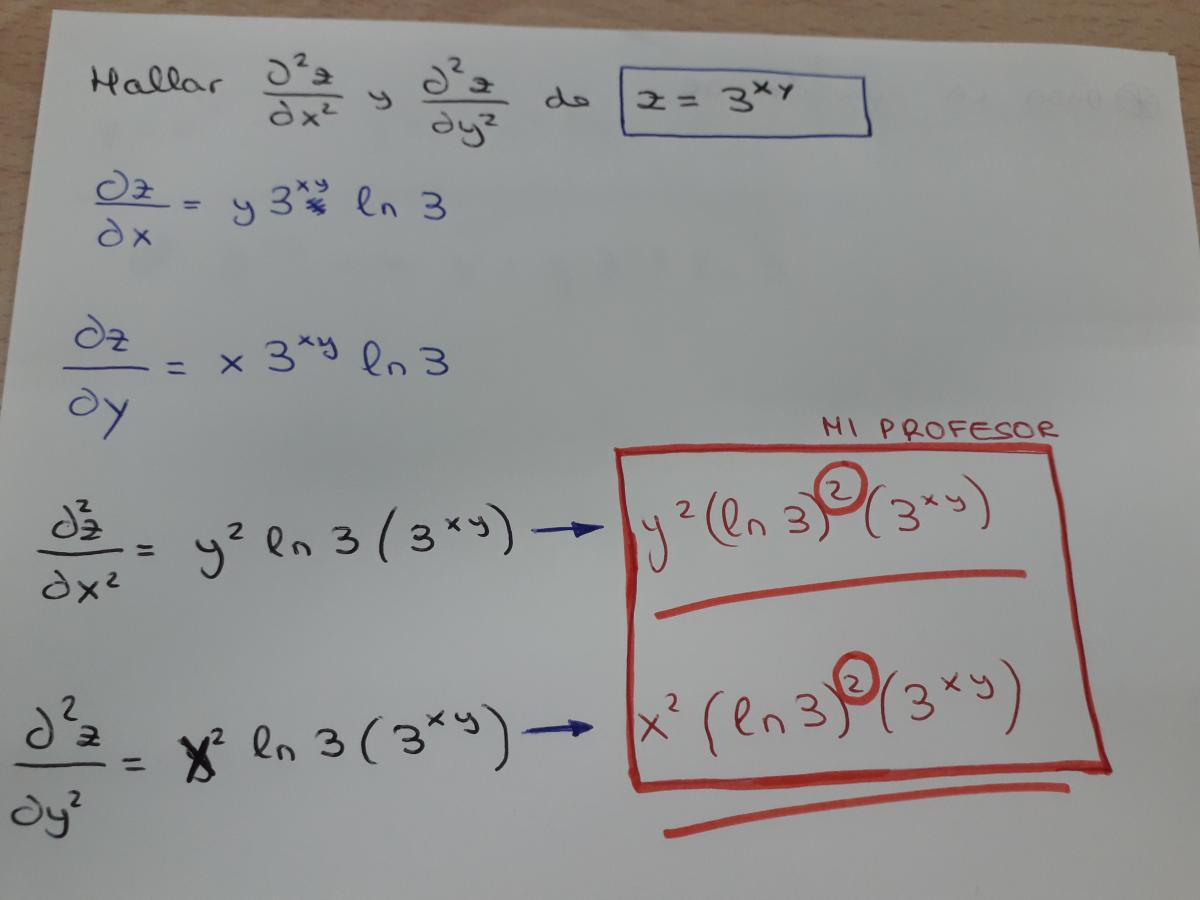 Hallar ∂²z/∂x² y ∂²z/∂y² de z = 3^xy
∂z/∂x = y 3^xy ln 3
∂z/∂y = x 3^xy ln 3
MI PROFESOR
∂²z/∂x² = y² ln 3 (3^xy) → y² (ln 3)² (3^xy)
∂²z/∂y² = x² ln 3 (3^xy) → x² (ln 3)² (3^xy)